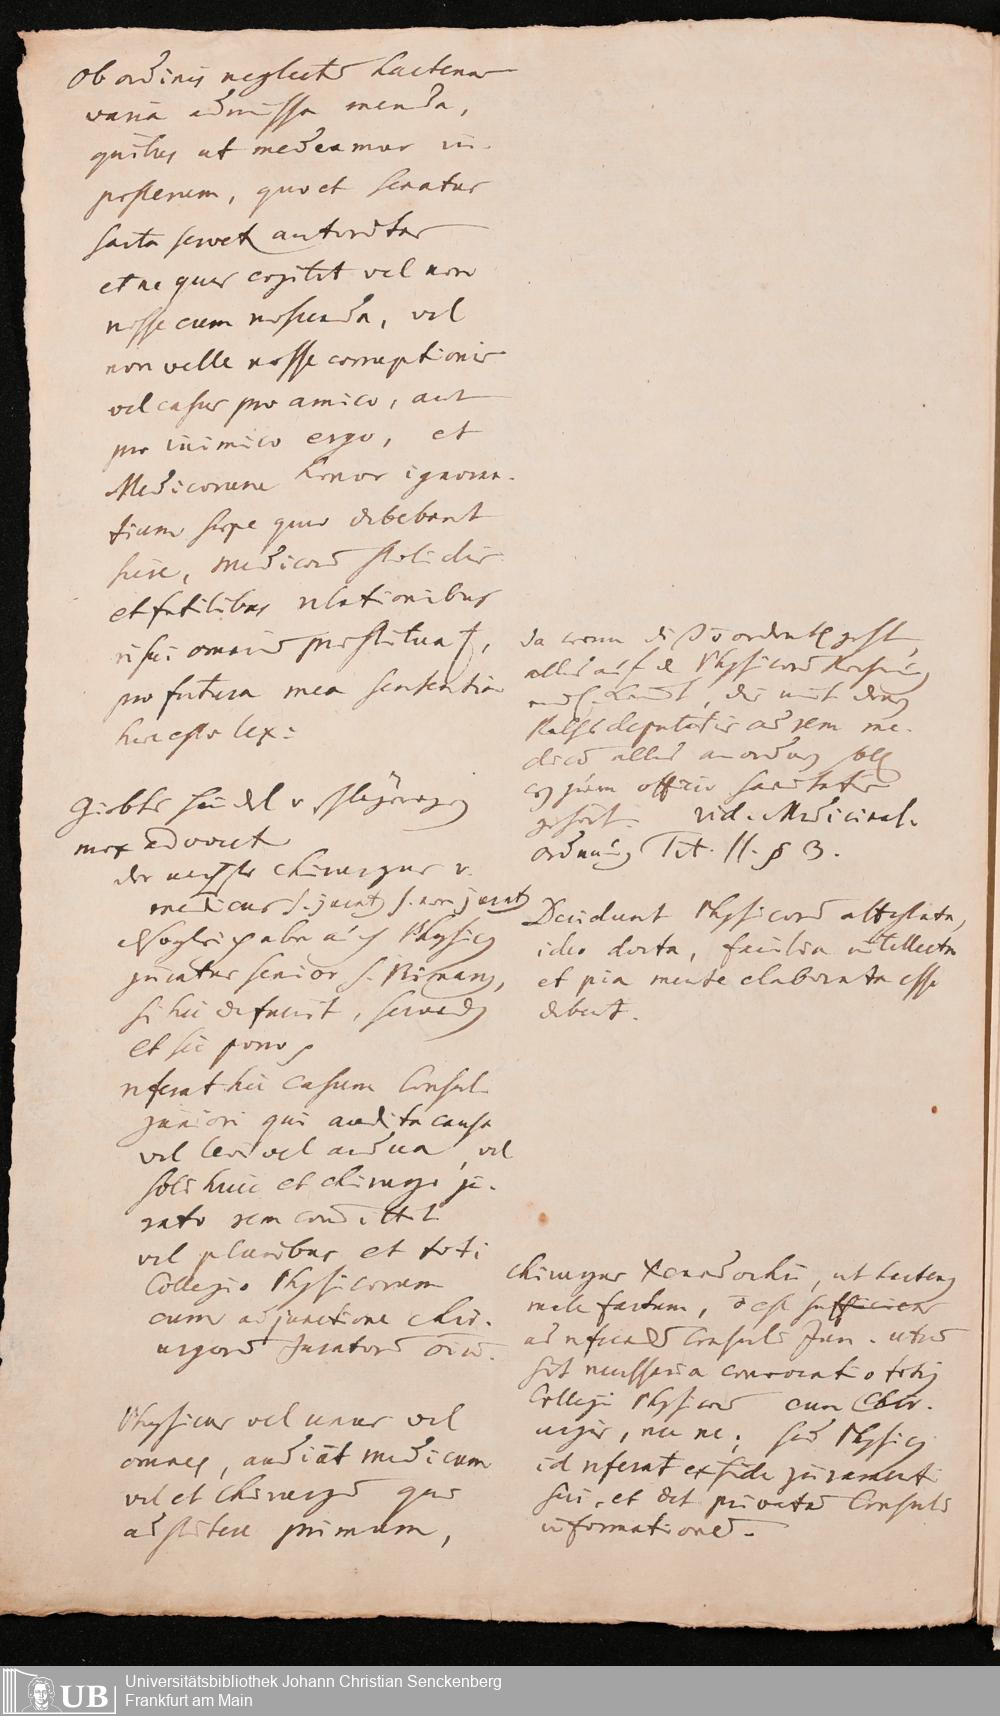 Ob ordinis neglectū hactenus
varia admissa menda,
quibus ut medeamur in
posterum, quo et Senatus
sarta servet autoritas
et ne quis cogitet vel non
nosse eum noscenda, vel
non velle nosse corruptionis
vel casus pro amico, aut
pro inimico ergo, et
Medicorum honor ignoran-
tium saepe quo debebant
sicie, medicorū stolidis
et futilibus relationibus
risui omniū prostituat,
pro futura mea sententia
haec esto lex:
mox advocet
der nechste chirurgus v.
medicus s. jurat s. non jurat
sogleich aber auch Physicus
juratus senior s. Primarius,
si hic defuerit, secundus
et sic porro
referat hic casum Consuli
juniori qui audita causa
vel levi vel ardua, vel
soli huic et chirurgo ju-
rato rem committit
vel pluribus et toti
Collegio Physicorum
cum adjunctione chir-
urgorū Juratorū oīū.
Physicus vel unus vel
omnes, audiāt medicum
vel et chirurgū qui
adstitere primum,
da wenn diß ordentl. geht,
alles auf d Physicorū
Rathsdeputatis ad rem me-
dicā alles anordnen soll
officio sanitatis
gehört. vid. Medicinal-
ordnung Tit. II. § 3.
Decidunt Physicorū attestata,
ideo docta, facilia intellectu
et pia mente elaborata esse
debent.
chirurgus Xenodochii, ut hactenus
male factum, ō est sufficiens
ad referendū Consuli Jun. utrū
sit necessaria convocatio totius
Collegii Physicorū cum Chir-
urgis, nec ne; sed Physicus
id referat ex fide juramenti
sui, et det privatā Consuli
informationē.
Universitätsbibliothek Johann Christian Senckenberg
Frankfurt am Main
UB